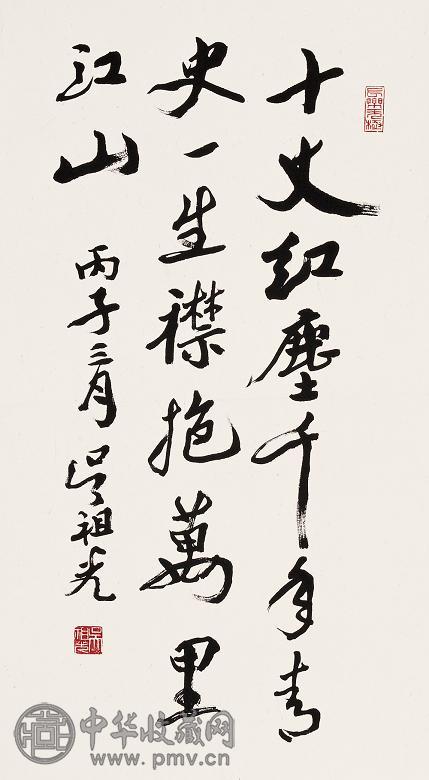 十丈红塵千年青
史一生襟抱萬里
江山
丙子三月吴祖光
中华收藏网
www.pmv.cn